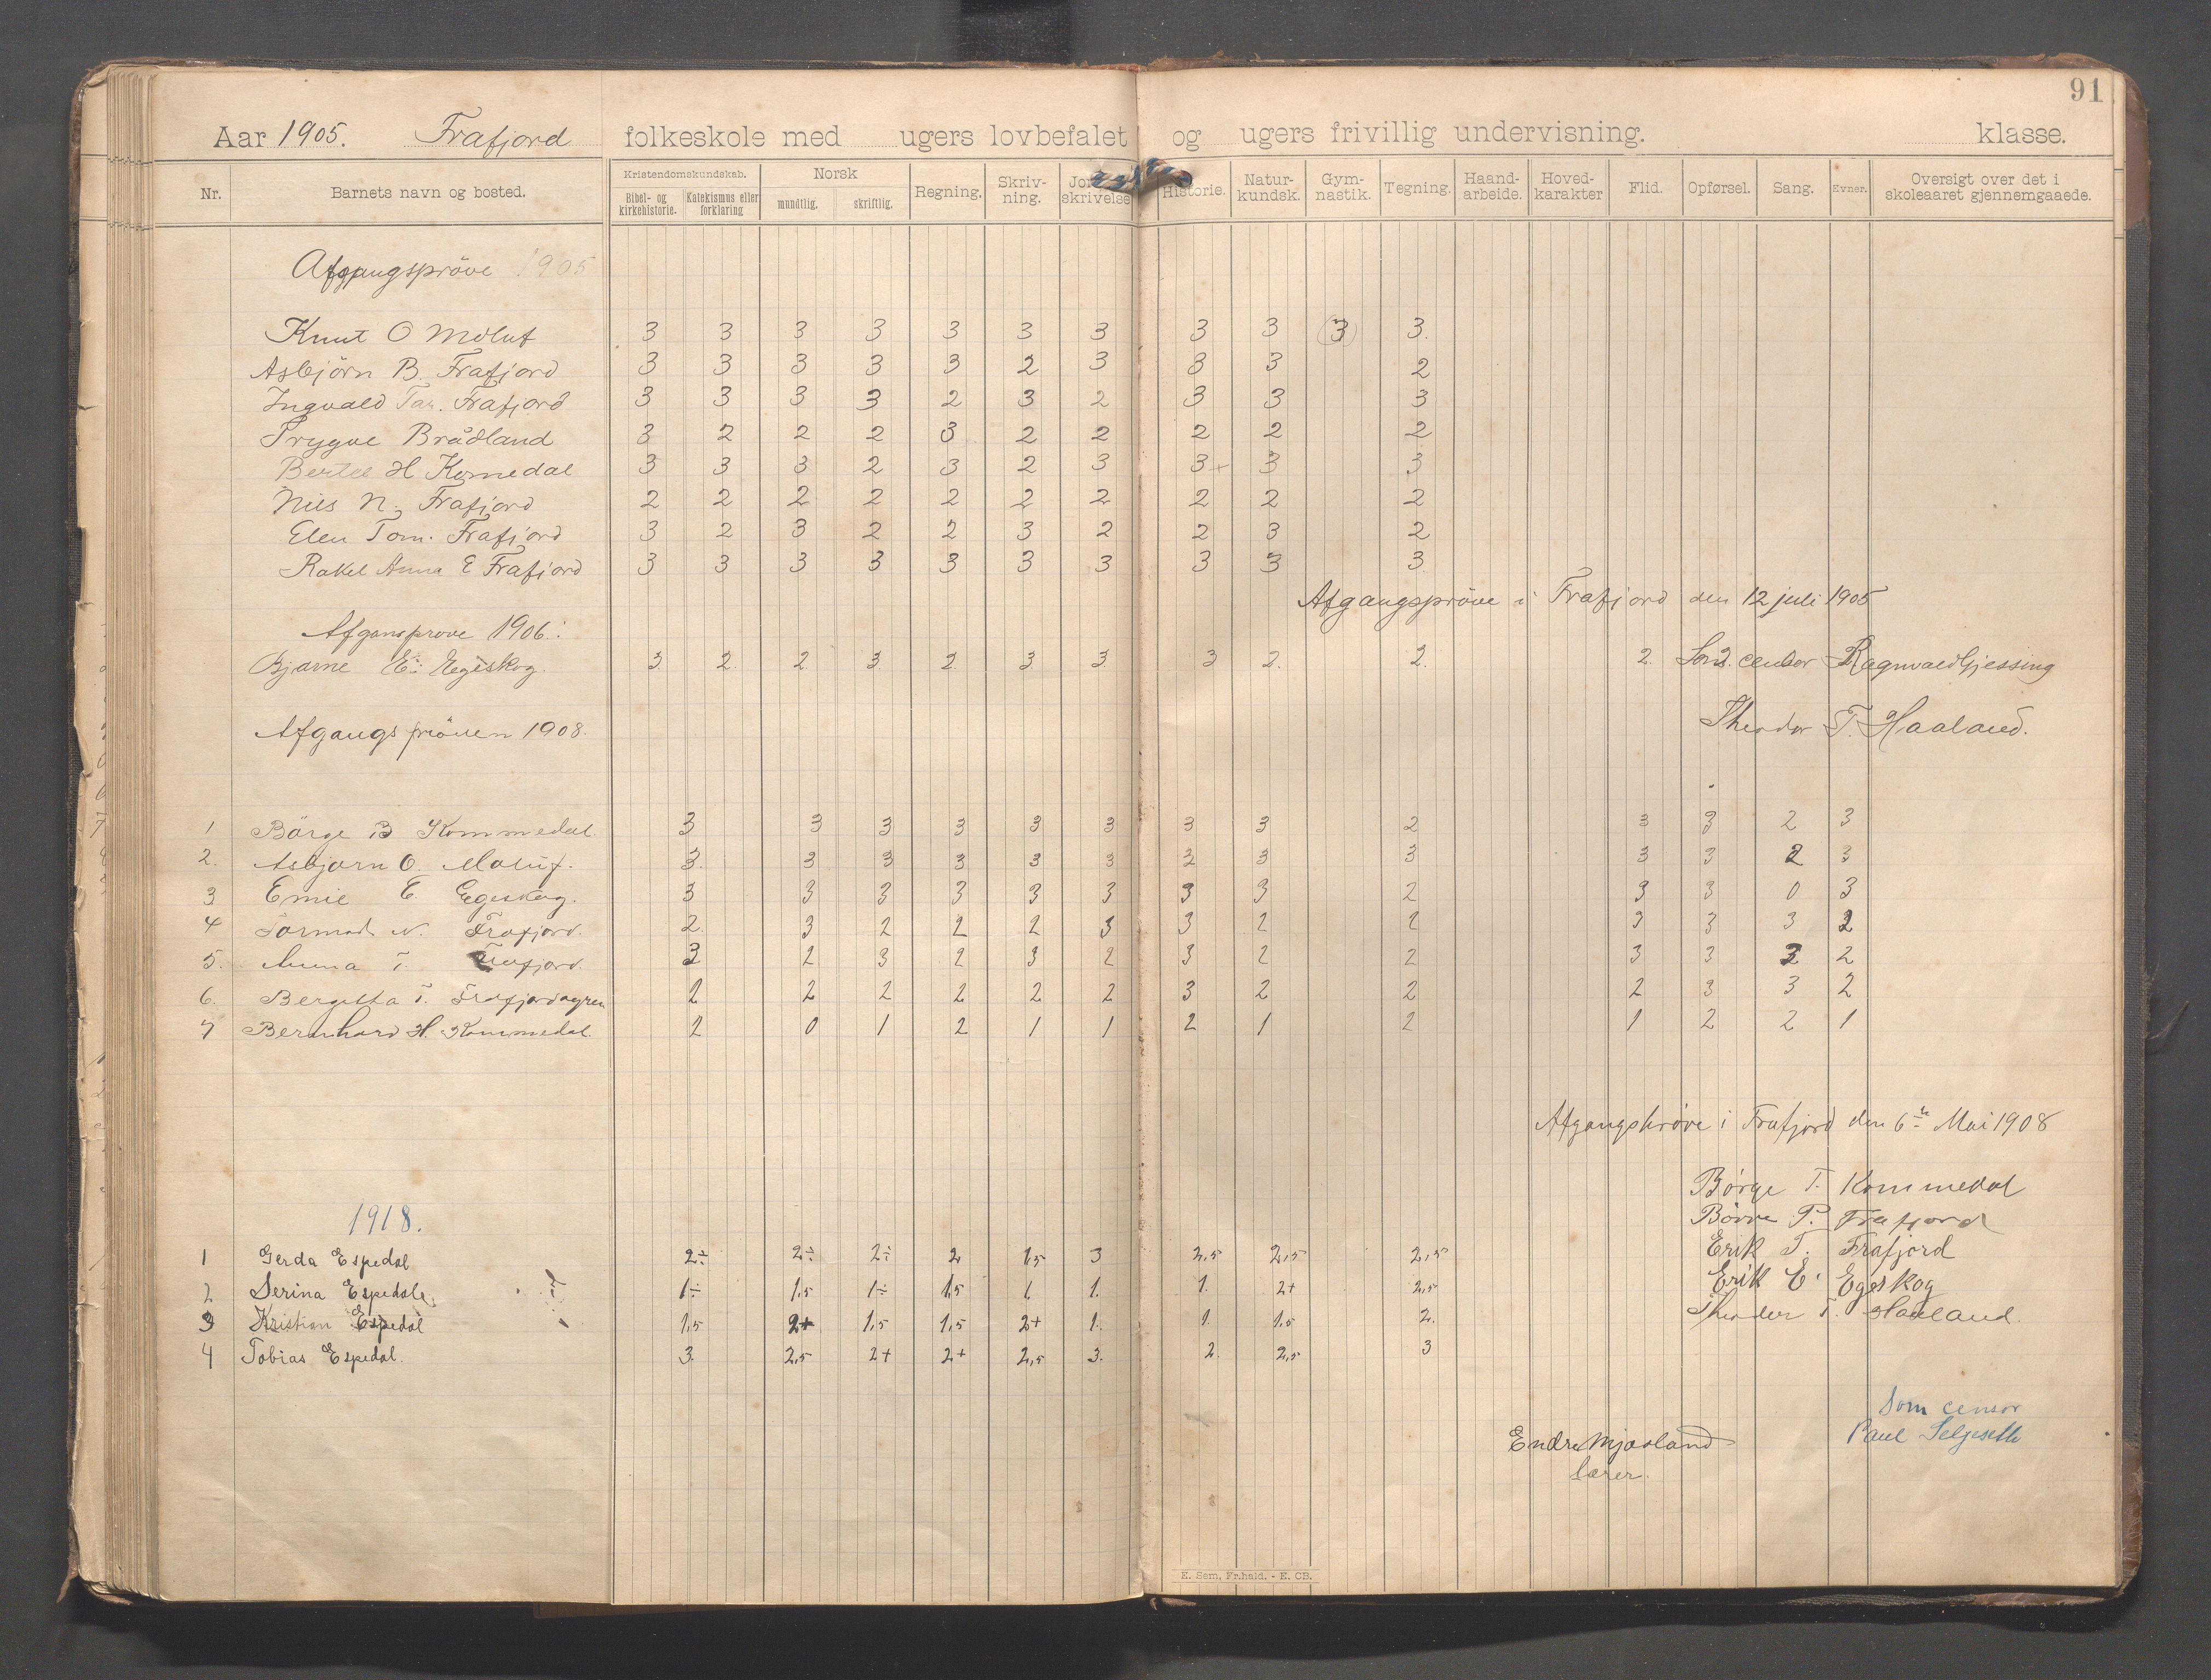 91
Aar 1905. Frafjord folkeskole med ugers lovbefalet og ugers frivillig undervisning. klasse.
Nr. Barnets navn og bosted. Kristendomskundskab. Bibel- og kirkehistorie. Katekismus eller forklaring Norsk mundtlig. skriftlig. Regning. Skriv-ning. Jor skrivelse Historie. Natur-kundsk. Gym-nastik. Tegning. Haand-arbeide. Hoved-karakter Flid. Opførsel. Sang. Evner. Oversigt over det i skoleaaret gjennemgaaede.
Afgangspröve 1905
Knut O Moluf 3 3 3 3 3 3 3 3 3 3 3.
Asbjörn B. Frafjord 3 3 3 3 3 2 3 3 3 2
Ingvald Tar. Frafjord 3 3 3 3 2 3 2 3 3 3
Trygve Brådland 3 2 2 2 3 2 2 2 2 2
Bertel H Komedal 3 3 3 2 3 2 3 3+ 3 3
Nils N. Frafjord 2 2 2 2 2 2 2 2 2 2
Elen Tom. Frafjord 3 2 3 2 2 3 2 2 3 2
Rakel Anna E Frafjord 3 3 3 3 3 3 3 3 3 3.
Afgangspröve i Frafjord den 12 juli 1905
Afgansprove 1906:
Bjarne E: Egeskog. 3. 2. 2. 3. 2. 3. 3. 3 2. 2. 2. Som censor Ragnvald Gjessing
Theodor T. Haaland.
Afgangspröven 1908.
1 Börge B Kommedal. 3 3 3 3 3 3 3 3 2 3 3 2 3
2. Asbjørn O. Moluf. 3. 3 3 3 3 3 2 3 3 3 3 2 3
3 Emil E. Egeskog. 3 3 3 3 3 3 3 3 2 3 3 0 3
4 Tormod N. Frafjord. 2. 3 2 2 2 3 3 2 2 3 3 3 2
5. Anna T. Frafjord. 3 2 3 2 3 2 3 2 2 3 3 3 2
6. Bergitta T. Frafjord 2 2 2 2 2 2 3 2 2 2 3 3 2
7 Bernhard H. Kommedal. 2 0 1 2 1 1 2 1 2 1 2 2 1
Afgangsprøve i Frafjord den 6te Mai 1908
Børge T. Kommedal
Børre P. Frafjord
Erik T. Frafjord
Erik E. Egeskog
Theodor T. Haaland.
1918.
1 Gerda Espedal 2÷ 2÷ 2÷ 2 1,5 3 2,5 2,5 2,5
2 Serina Espedal 1÷ 1,5 1÷ 1,5 1 1. 1. 2+ 2,5
3 Kristian Espedal 1,5 2+ 1,5 1,5 2+ 1. 1. 1,5 2.
4 Tobias Espedal. 3. 2,5 2+ 2+ 2,5 3. 2. 2,5 3
Som censor
Paul Seljesette
Endre Mjøsland
lærer.
E. Sem, Fr.hald. - E. CB.